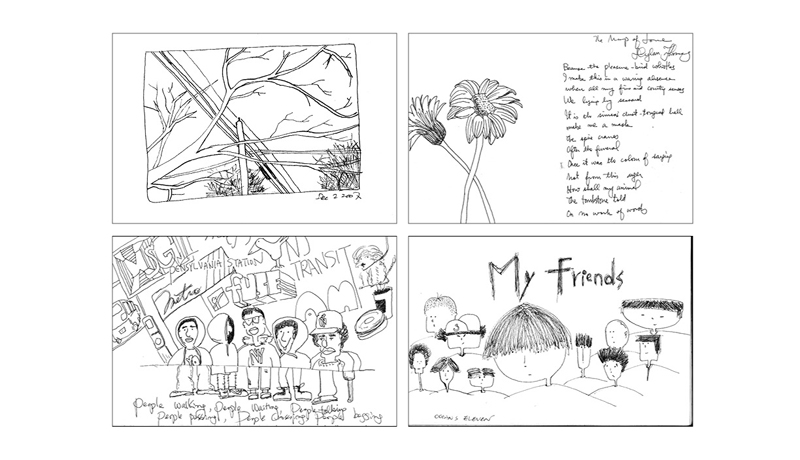 Dec 2 2007
The Map of Love
Dylan Thomas
Because the pleasure-bird whistles
I make this in a warring absence
when all my five and country senses
We lying by seasand
It is the sinners' dust-tongued bell
make me a mask
the spire cranes
After the funeral
Once it was the colour of saying
Not from this anger
How shall my animal
The tombstone told
On no work of words
MSG
NJ
PENSYLVANIA STATION
TRANSIT
Metro
People walking, People Waiting, People talking
People passing, People People begging
My Friends
ELEVEN